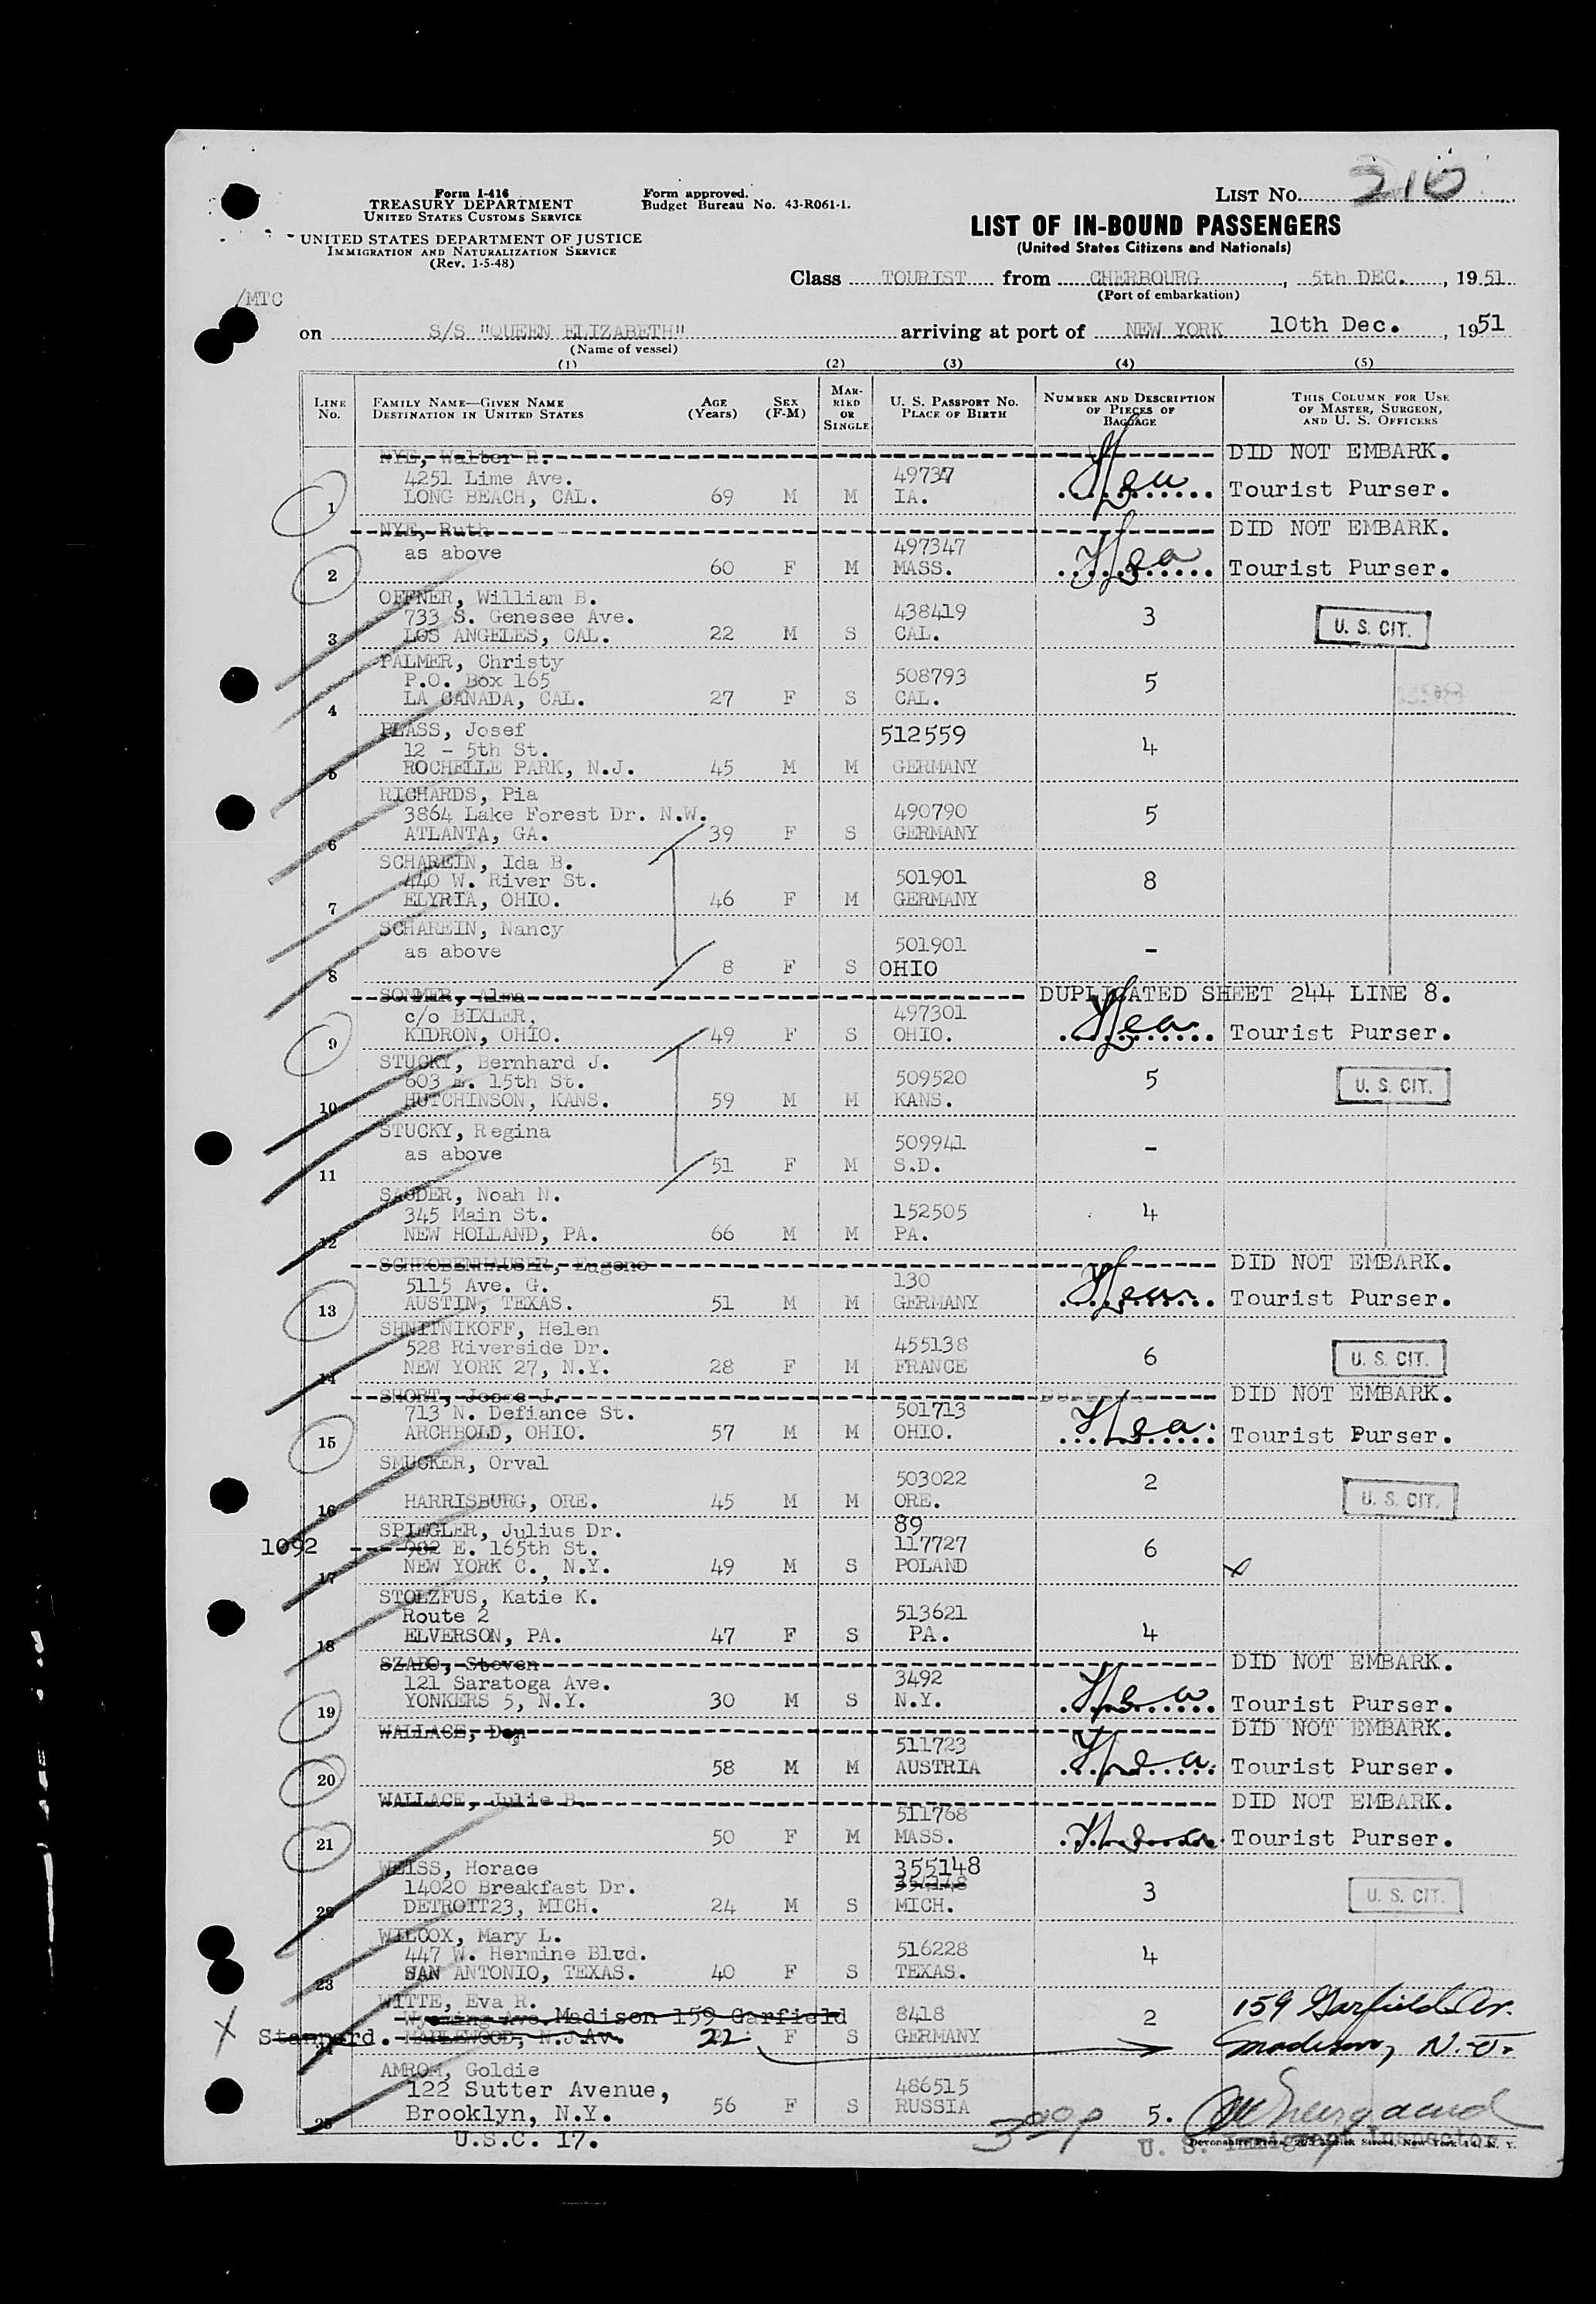 Form I-416
TREASURY DEPARTMENT
UNITED STATES CUSTOMS SERVICE
UNITED STATES DEPARTMENT OF JUSTICE
IMMIGRATION AND NATURALIZATION SERVICE
(Rev. 1-5-48)
Form approved.
Budget Bureau No. 43-R061-1.
LIST NO. 210
LIST OF IN-BOUND PASSENGERS
(United States Citizens and Nationals)
Class TOURIST from CHERBOURG, 5th DEC., 1951
(Port of embarkation)
/MTC
on S/S "QUEEN ELIZABETH" arriving at port of NEW YORK 10th Dec., 1951
(Name of vessel)
(1) (2) (3) (4) (5)
LINE NO. FAMILY NAME—GIVEN NAME DESTINATION IN UNITED STATES AGE (Years) SEX (F-M) MARRIED OR SINGLE U. S. PASSPORT NO. PLACE OF BIRTH NUMBER AND DESCRIPTION OF PIECES OF BAGGAGE THIS COLUMN FOR USE OF MASTER, SURGEON, AND U. S. OFFICERS
NYE, Walter R. DID NOT EMBARK.
4251 Lime Ave. 49737
1 LONG BEACH, CAL. 69 M M IA. Tourist Purser.
NYE, Ruth DID NOT EMBARK.
as above 497347
2 60 F M MASS. Tourist Purser.
OFFNER, William B.
733 S. Genesee Ave. 438419 3 U. S. CIT.
3 LOS ANGELES, CAL. 22 M S CAL.
PALMER, Christy
P.O. Box 165 508793 5
4 LA CANADA, CAL. 27 F S CAL.
PLASS, Josef 512559
12 - 5th St. 4
5 ROCHELLE PARK, N.J. 45 M M GERMANY
RICHARDS, Pia
3864 Lake Forest Dr. N.W. 490790 5
6 ATLANTA, GA. 39 F S GERMANY
SCHAREIN, Ida B.
440 W. River St. 501901 8
7 ELYRIA, OHIO. 46 F M GERMANY
SCHAREIN, Nancy
as above 501901 -
8 8 F S OHIO
SOMMER, Alma DUPLICATED SHEET 244 LINE 8.
c/o BIXLER, 497301
9 KIDRON, OHIO. 49 F S OHIO. Tourist Purser.
STUCKY, Bernhard J.
603 E. 15th St. 509520 5 U. S. CIT.
10 HUTCHINSON, KANS. 59 M M KANS.
STUCKY, Regina
as above 509941 -
11 51 F M S.D.
SAUDER, Noah N.
345 Main St. 152505 4
12 NEW HOLLAND, PA. 66 M M PA.
SCHROBENHAUSER, Eugene DID NOT EMBARK.
5115 Ave. G. 130
13 AUSTIN, TEXAS. 51 M M GERMANY Tourist Purser.
SHNITNIKOFF, Helen
528 Riverside Dr. 455138 6 U. S. CIT.
14 NEW YORK 27, N.Y. 28 F M FRANCE
SHORT, Jesse J. DID NOT EMBARK.
713 N. Defiance St. 501713
15 ARCHBOLD, OHIO. 57 M M OHIO. Tourist Purser.
SMUCKER, Orval
503022 2 U. S. CIT.
16 HARRISBURG, ORE. 45 M M ORE.
SPIEGLER, Julius Dr. 89
1092 982 E. 165th St. 117727 6
17 NEW YORK C., N.Y. 49 M S POLAND
STOLZFUS, Katie K.
Route 2 513621
18 ELVERSON, PA. 47 F S PA. 4
SZABO, Steven DID NOT EMBARK.
121 Saratoga Ave. 3492
19 YONKERS 5, N.Y. 30 M S N.Y. Tourist Purser.
WALLACE, Don DID NOT EMBARK.
511723
20 58 M M AUSTRIA Tourist Purser.
WALLACE, Julie B. DID NOT EMBARK.
511768
21 50 F M MASS. Tourist Purser.
WEISS, Horace 355148
14020 Breakfast Dr. 3 U. S. CIT.
22 DETROIT23, MICH. 24 M S MICH.
WILCOX, Mary L.
447 W. Hermine Blvd. 516228 4
23 SAN ANTONIO, TEXAS. 40 F S TEXAS.
WITTE, Eva R.
Wyoming Ave. Madison 159 Garfield 8418 2 159 Garfield Av.
X Stannard. MAPLEWOOD, N.J Av. 22 F S GERMANY Madison, N.J.
AMROM, Goldie
122 Sutter Avenue, 486515
25 Brooklyn, N.Y. 56 F S RUSSIA 5.
U.S.C. 17.
U. S. Immigrant Inspector